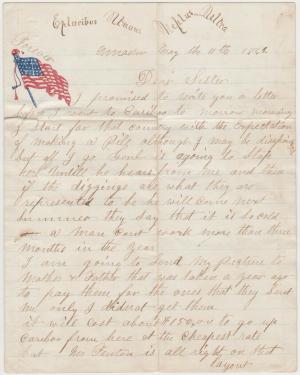 Epluribus Unum Neplus Ultra
May the 11th 1862
Dear Sister
I promised to write you a letter
before I went to Cariboo to morrow morning
I start for that country with the Expectation
of making a Pile although I may be disap
but all I go Gent is agoing to Stop
here Untill he hears from me and then
if the diggings are what they are
represented to be he will come next
summer they say that it is so cold
a man cant work more than three
months in the year
I am going to send my picture to
Mother & Father that was taken a year ago
to pay them for the ones that they Sent
me only I did not get them
it will cost about $150.00 to go up
Cariboo from here at the cheapest rate
but Mr Fenton is all right on that
layout